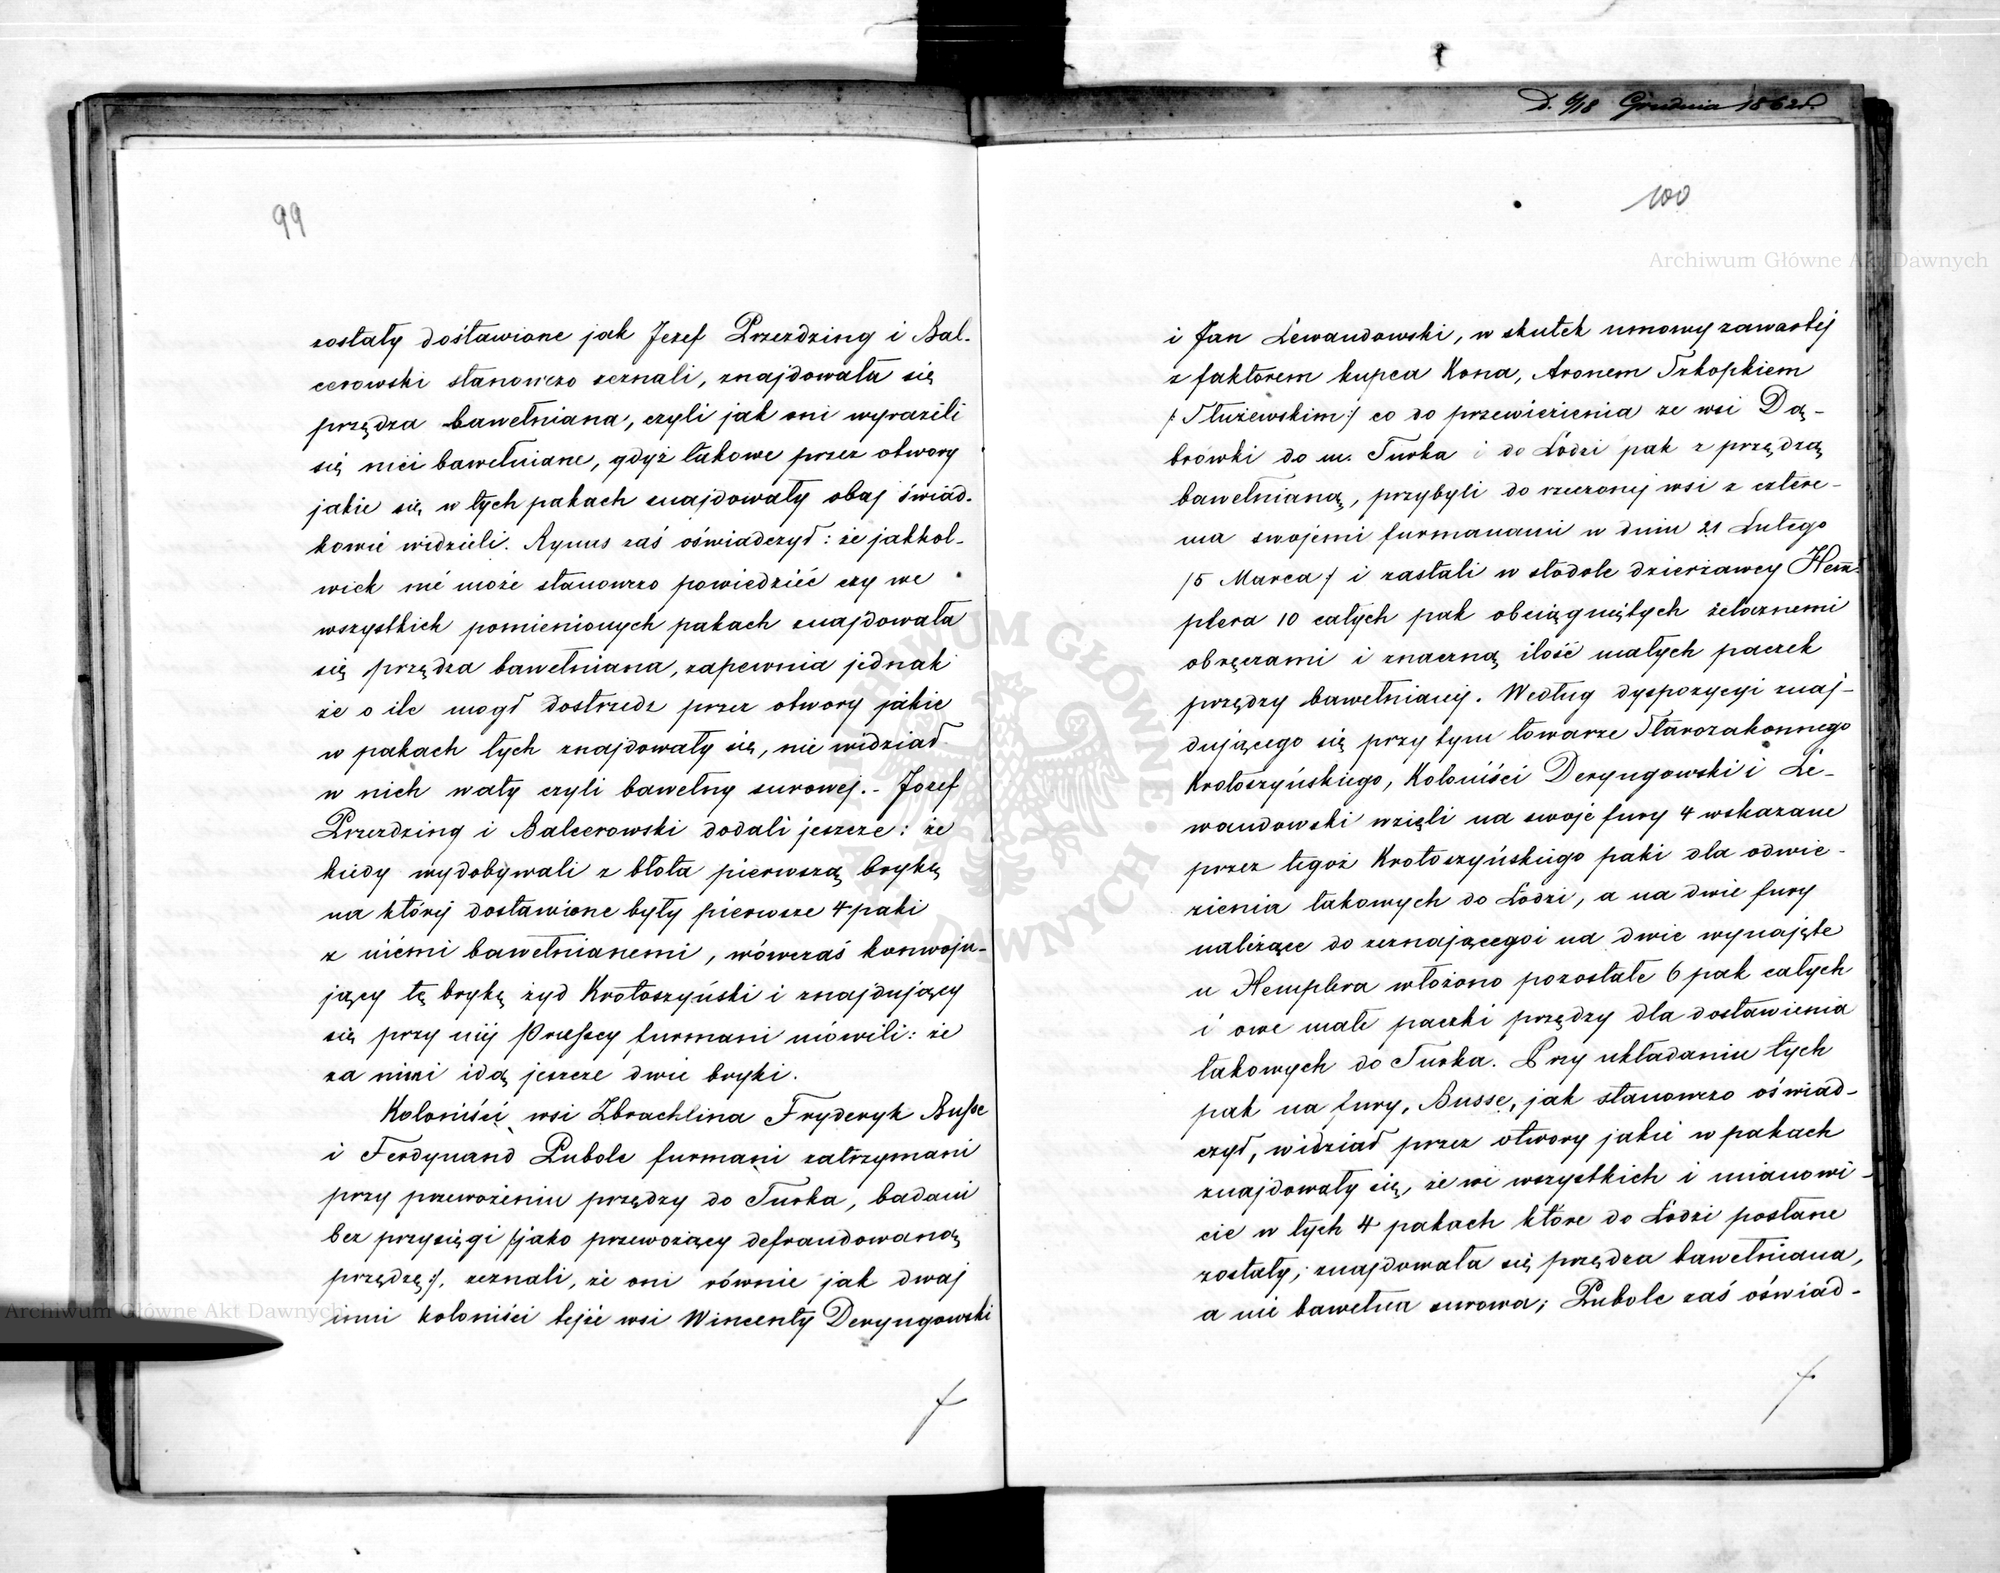 D. 6/18 Grudnia 1862 r.
99
zostały dostawione jak Jozef Przezdzing i Bal-
cerowski stanowczo zeznali, znajdowała się
przędza bawełniana, czyli jak oni wyrazili
się nici bawełniane, gdyż takowe przez otwory
jakie się w tych pakach znajdowały obaj świad-
kowie widzieli. Rynus zaś oświadczył: że jakkol-
wiek nie może stanowczo powiedzieć czy we
wszystkich pomienionych pakach znajdowała
się przędza bawełniana, zapewnia jednak
że o ile mogł dostrzedz przez otwory jakie
w pakach tych znajdowały się, nie widział
w nich waty czyli bawełny surowej. - Jozef
Przezdzing i Balcerowski dodali jeszcze: że
kiedy wydobywali z błota pierwszą brykę
na któréj dostawione były pierwsze 4 paki
z nićmi bawełnianemi, wówczas konwoju-
jący tę brykę żyd Krotoszyński i znajdujący
się przy niéj Pruscy furmani mówili: że
za nimi idą jeszcze dwie bryki.
Koloniści wsi Zbrachlina Fryderyk Busse
i Ferdynand Pubole furmani zatrzymani
przy przewożeniu przędzy do Turka, badani
bez przysięgi /:jako przewożący defraudowaną
przędzę:/, zeznali, że oni równie jak dwaj
inni koloniści tejże wsi Wincenty Deryngowski
100
i Jan Lewandowski, w skutek umowy zawartej
z faktorem kupca Kona, Aronem Szkopkiem
/:Stużewskim:/ co do przewiezienia ze wsi Dą-
brówki do m. Turka i do Łodzi pak z przędzą
bawełnianą, przybyli do rzeczonéj wsi z cztere-
ma swojemi furmanami w dniu 21 Lutego
/5 Marca/ i zastali w stodole dzierżawcy Hem-
plera 10 całych pak obciągniętych żelaznemi
obręczami i znaczną ilość małych paczek
przędzy bawełnianéj. Według dyspozycyi znaj-
dującego się przy tym towarze Starozakonnego
Krotoszyńskiego, Koloniści Deryngowski i Le-
wandowski wzięli na swoje fury 4 wskazane
przez tegoż Krotoszyńskiego paki dla odwie-
zienia takowych do Łodzi, a na dwie fury
należące do zeznającego i na dwie wynajęte
u Hemplera włożono pozostałe 6 pak całych
i owe małe paczki przędzy dla dostawienia
takowych do Turka. Przy układaniu tych
pak na fury, Busse, jak stanowczo oświad-
czył, widział przez otwory jakie w pakach
znajdowały się, że we wszystkich i mianowi-
cie w tych 4 pakach które do Łodzi posłane
zostały, znajdowała się przędza bawełniana,
a nie bawełna surowa; Pubole zaś oświad-
Archiwum Główne Akt Dawnych
Archiwum Główne Akt Dawnych
ARCHIWUM GŁÓWNE AKT DAWNYCH